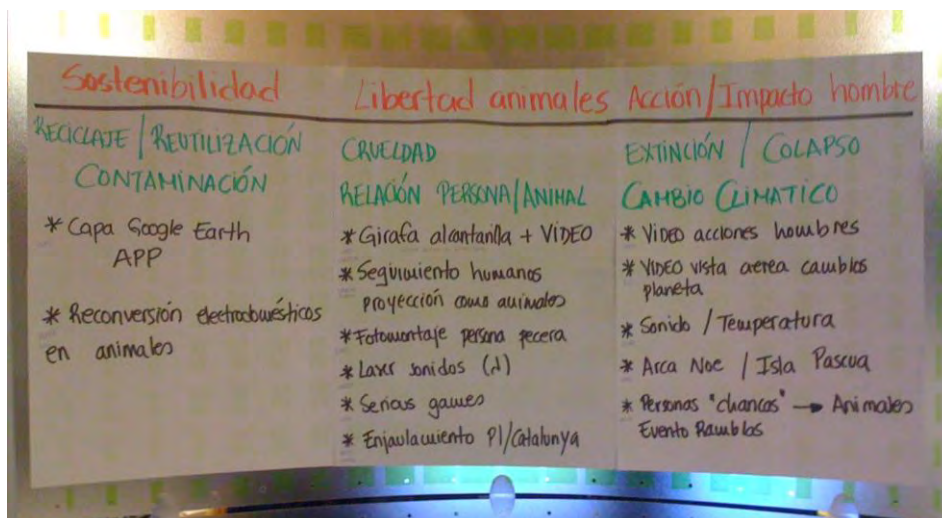 Sostenibilidad
RECICLAJE / REUTILIZACIÓN
CONTAMINACIÓN
* Capa Google Earth
APP
* Reconversión electrodomésticos
en animales
Libertad animales
CRUELDAD
RELACIÓN PERSONA/ANIMAL
* Girafa alcantarilla + VIDEO
* Seguimiento humanos
proyección como animales
* Fotomontaje persona pecera
* Laser sonidos
* Serious games
* Enjaulamiento Pl/Catalunya
Acción/Impacto hombre
EXTINCIÓN / COLAPSO
CAMBIO CLIMATICO
* VIDEO acciones hombres
* VIDEO vista aerea cambios
planeta
* Sonido / Temperatura
* Arca Noe / Isla Pascua
* Personas "chancas" → Animales
Evento Ramblas